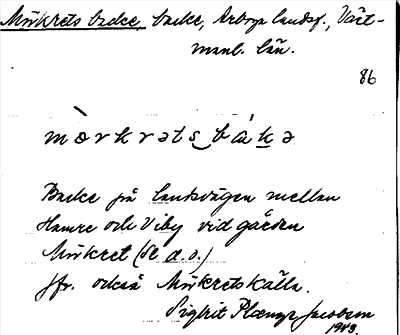 Mörkrets backe, backe, Arboga landsf., Väst-
manl. län.
86
mòrkrətsbákə
Backe på landsvägen mellan
Hamre och Viby vid gården
Mörkret (se d.o.)
Jfr. också Mörkretskälla.
Sigbrit Plænge Jacobson
1943.